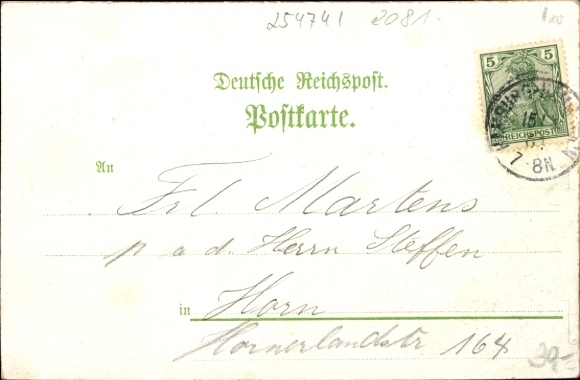 254741 2081.
Deutsche Reichspost.
Postkarte.
5 5
REICHSPOST
15
7-8N
An
Frl. Martens
p a d. Herrn Steffen
in Horn
Hornerlandstr 164